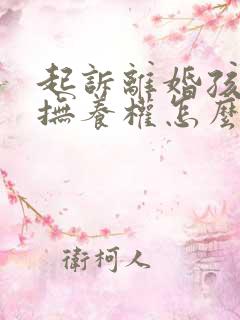 起訴離婚孩
撫養權怎麼
衛柯人